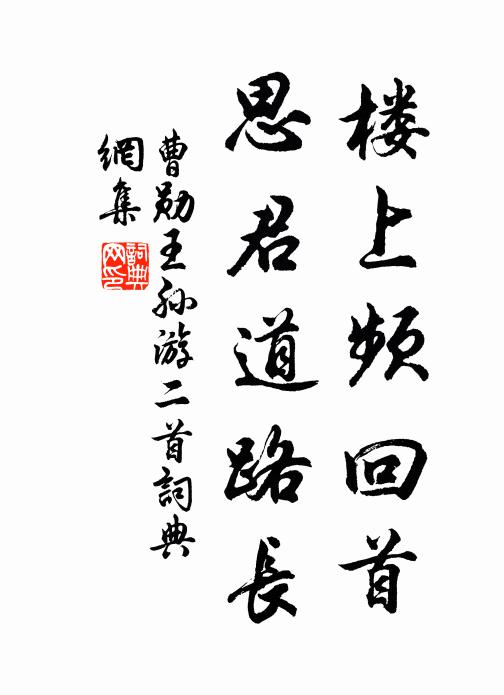 楼上频回首
思君道路長
曹勛王孙游二首詞典
網集
詞典
网印